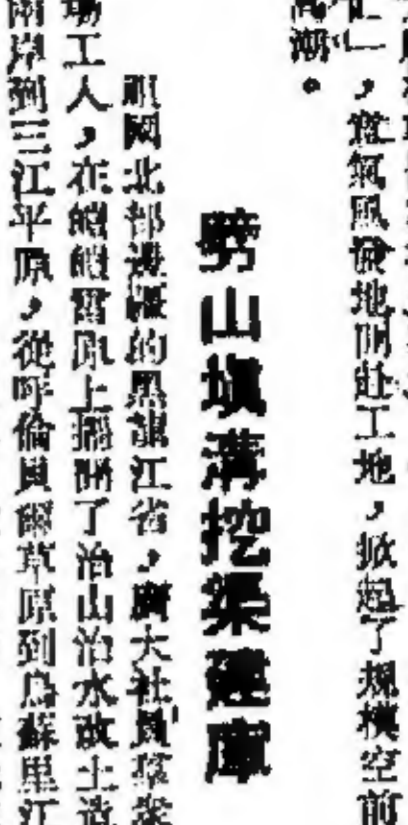 ，意氣風發地開赴工地，掀起了規模空前
高潮。
劈山填溝挖渠建庫
祖國北部邊疆的黑龍江省，廣大社員羣衆
場工人，在皚皚雪原上擺開了治山治水改土造
兩岸到三江平原，從呼倫貝爾草原到烏蘇里江